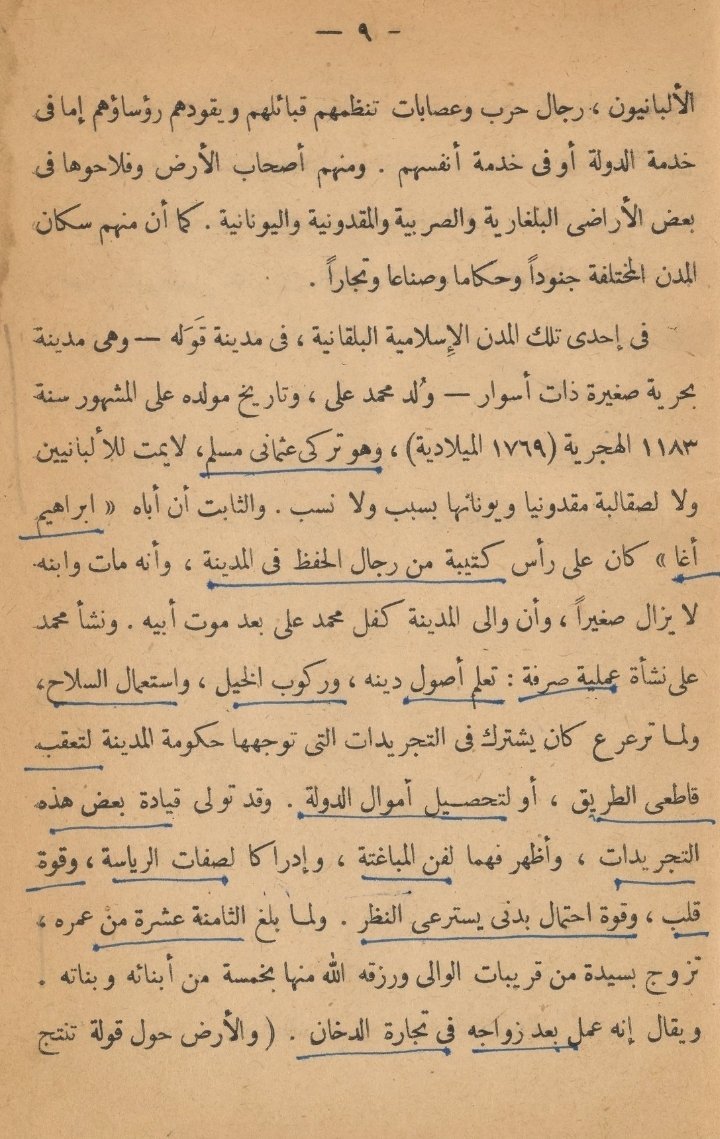 - ٩ —
الألبانيون ، رجال حرب وعصابات تنظمهم قبائلهم ويقودهم رؤساؤهم إما فى
خدمة الدولة أو فى خدمة أنفسهم . ومنهم أصحاب الأرض وفلاحوها فى
بعض الأراضى البلغارية والصربية والمقدونية واليونانية . كما أن منهم سكان
المدن المختلفة جنوداً وحكاما وصناعا وتجاراً .
فى إحدى تلك المدن الإسلامية البلقانية ، فى مدينة قَوَله — وهى مدينة
بحرية صغيرة ذات أسوار — وُلد محمد على ، وتاريخ مولده على المشهور سنة
١١٨٣ الهجرية (١٧٦٩ الميلادية) ، وهو تركى عثمانى مسلم، لا يمت للألبانيين
ولا لصقالبة مقدونيا ويونانها بسبب ولا نسب . والثابت أن أباه « ابراهيم
أغا » كان على رأس كتيبة من رجال الحفظ فى المدينة ، وأنه مات وابنه
لا يزال صغيراً ، وأن والى المدينة كفل محمد على بعد موت أبيه . ونشأ محمد
على نشأة عملية صرفة : تعلم أصول دينه ، وركوب الخيل ، واستعمال السلاح،
ولما ترعرع كان يشترك فى التجريدات التى توجهها حكومة المدينة لتعقب
قاطعى الطريق ، أو لتحصيل أموال الدولة . وقد تولى قيادة بعض هذه
التجريدات ، وأظهر فهما لفن المباغتة ، وإدراكا لصفات الرياسة ، وقوة
قلب ، وقوة احتمال بدنى يسترعى النظر . ولما بلغ الثامنة عشرة من عمره ،
تزوج بسيدة من قريبات الوالى ورزقه الله منها بخمسة من أبنائه وبناته .
ويقال إنه عمل بعد زواجه فى تجارة الدخان . ( والأرض حول قولة تنتج